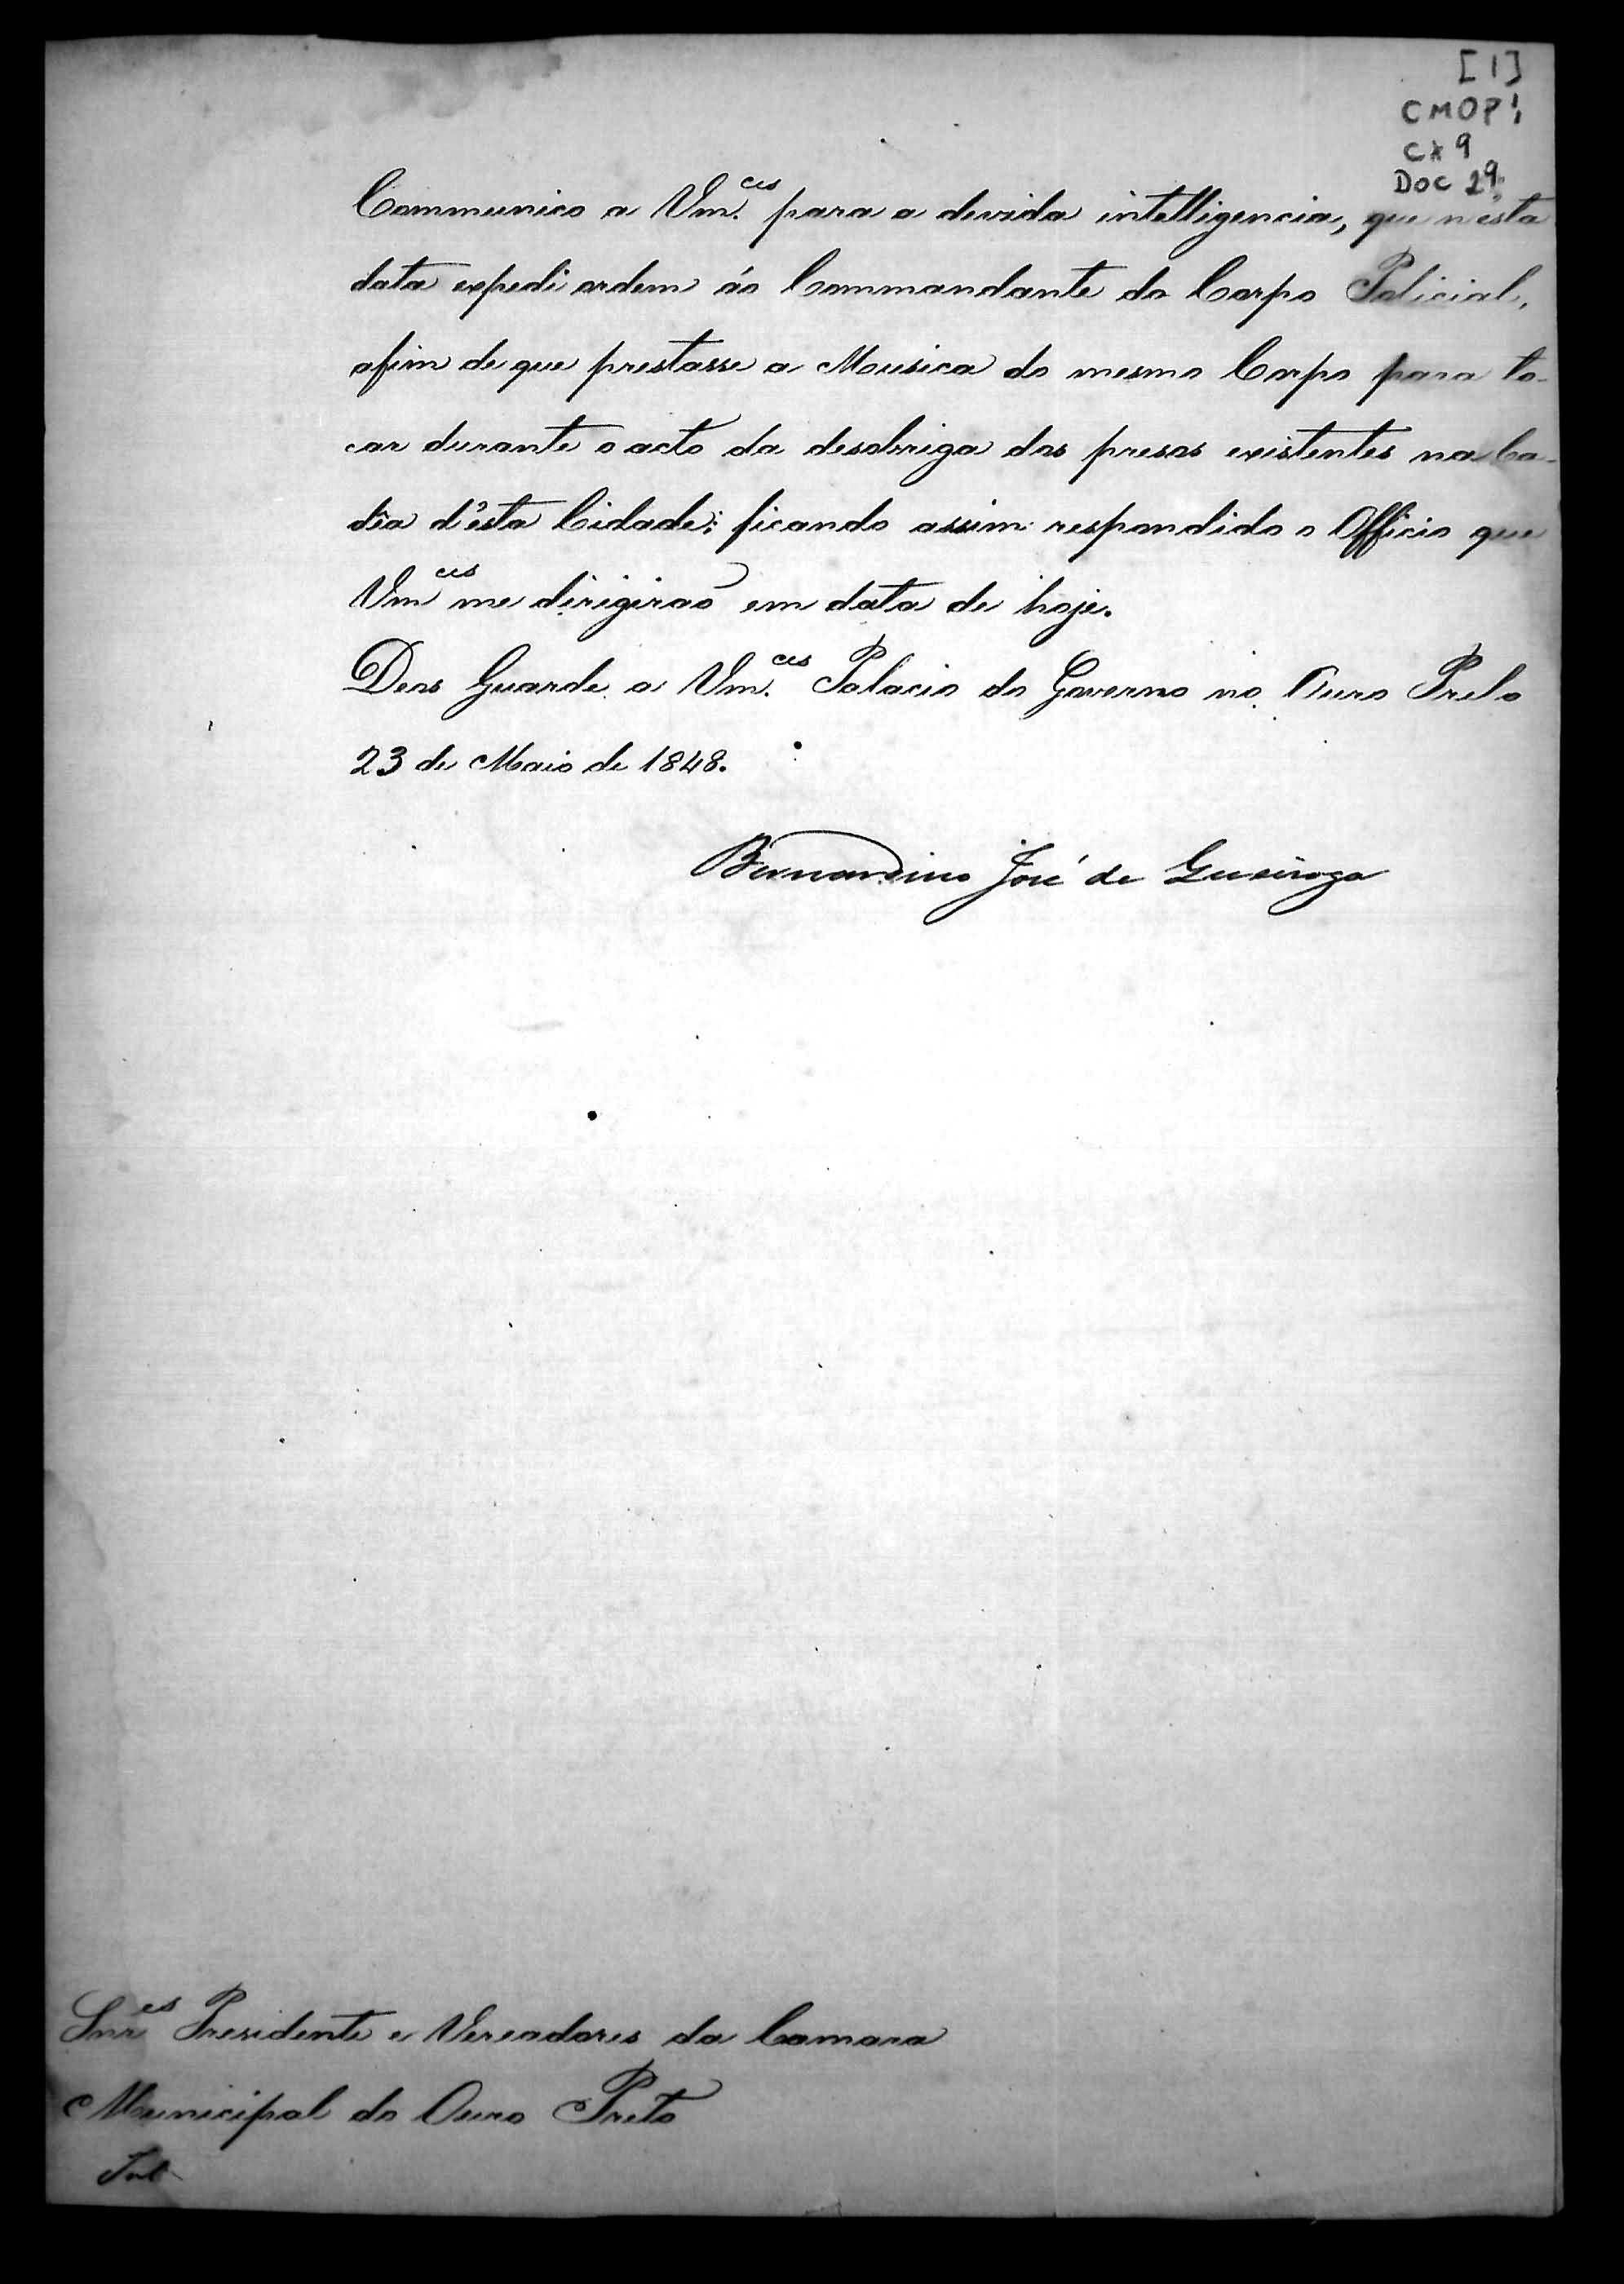 [1]
CMOP 1,
Cx 9
Doc 29
Communico a Vm.ces para a devida intelligencia, que n'esta
data expedi ordem áo Commandante do Corpo Policial,
afim de que prestasse a Musica do mesmo Corpo para to-
car durante o acto da desobriga dos presos existentes na Ca-
dêa d'esta Cidade; ficando assim respondido o Officio que
Vmces me dirigirão em data de hoje.
Deos Guarde a Vm.ces Palacio do Governo no Ouro Preto
23 de Maio de 1848.
Bernardino José de Queiroga
Snres Presidente e Vereadores da Camara
Municipal do Ouro Preto